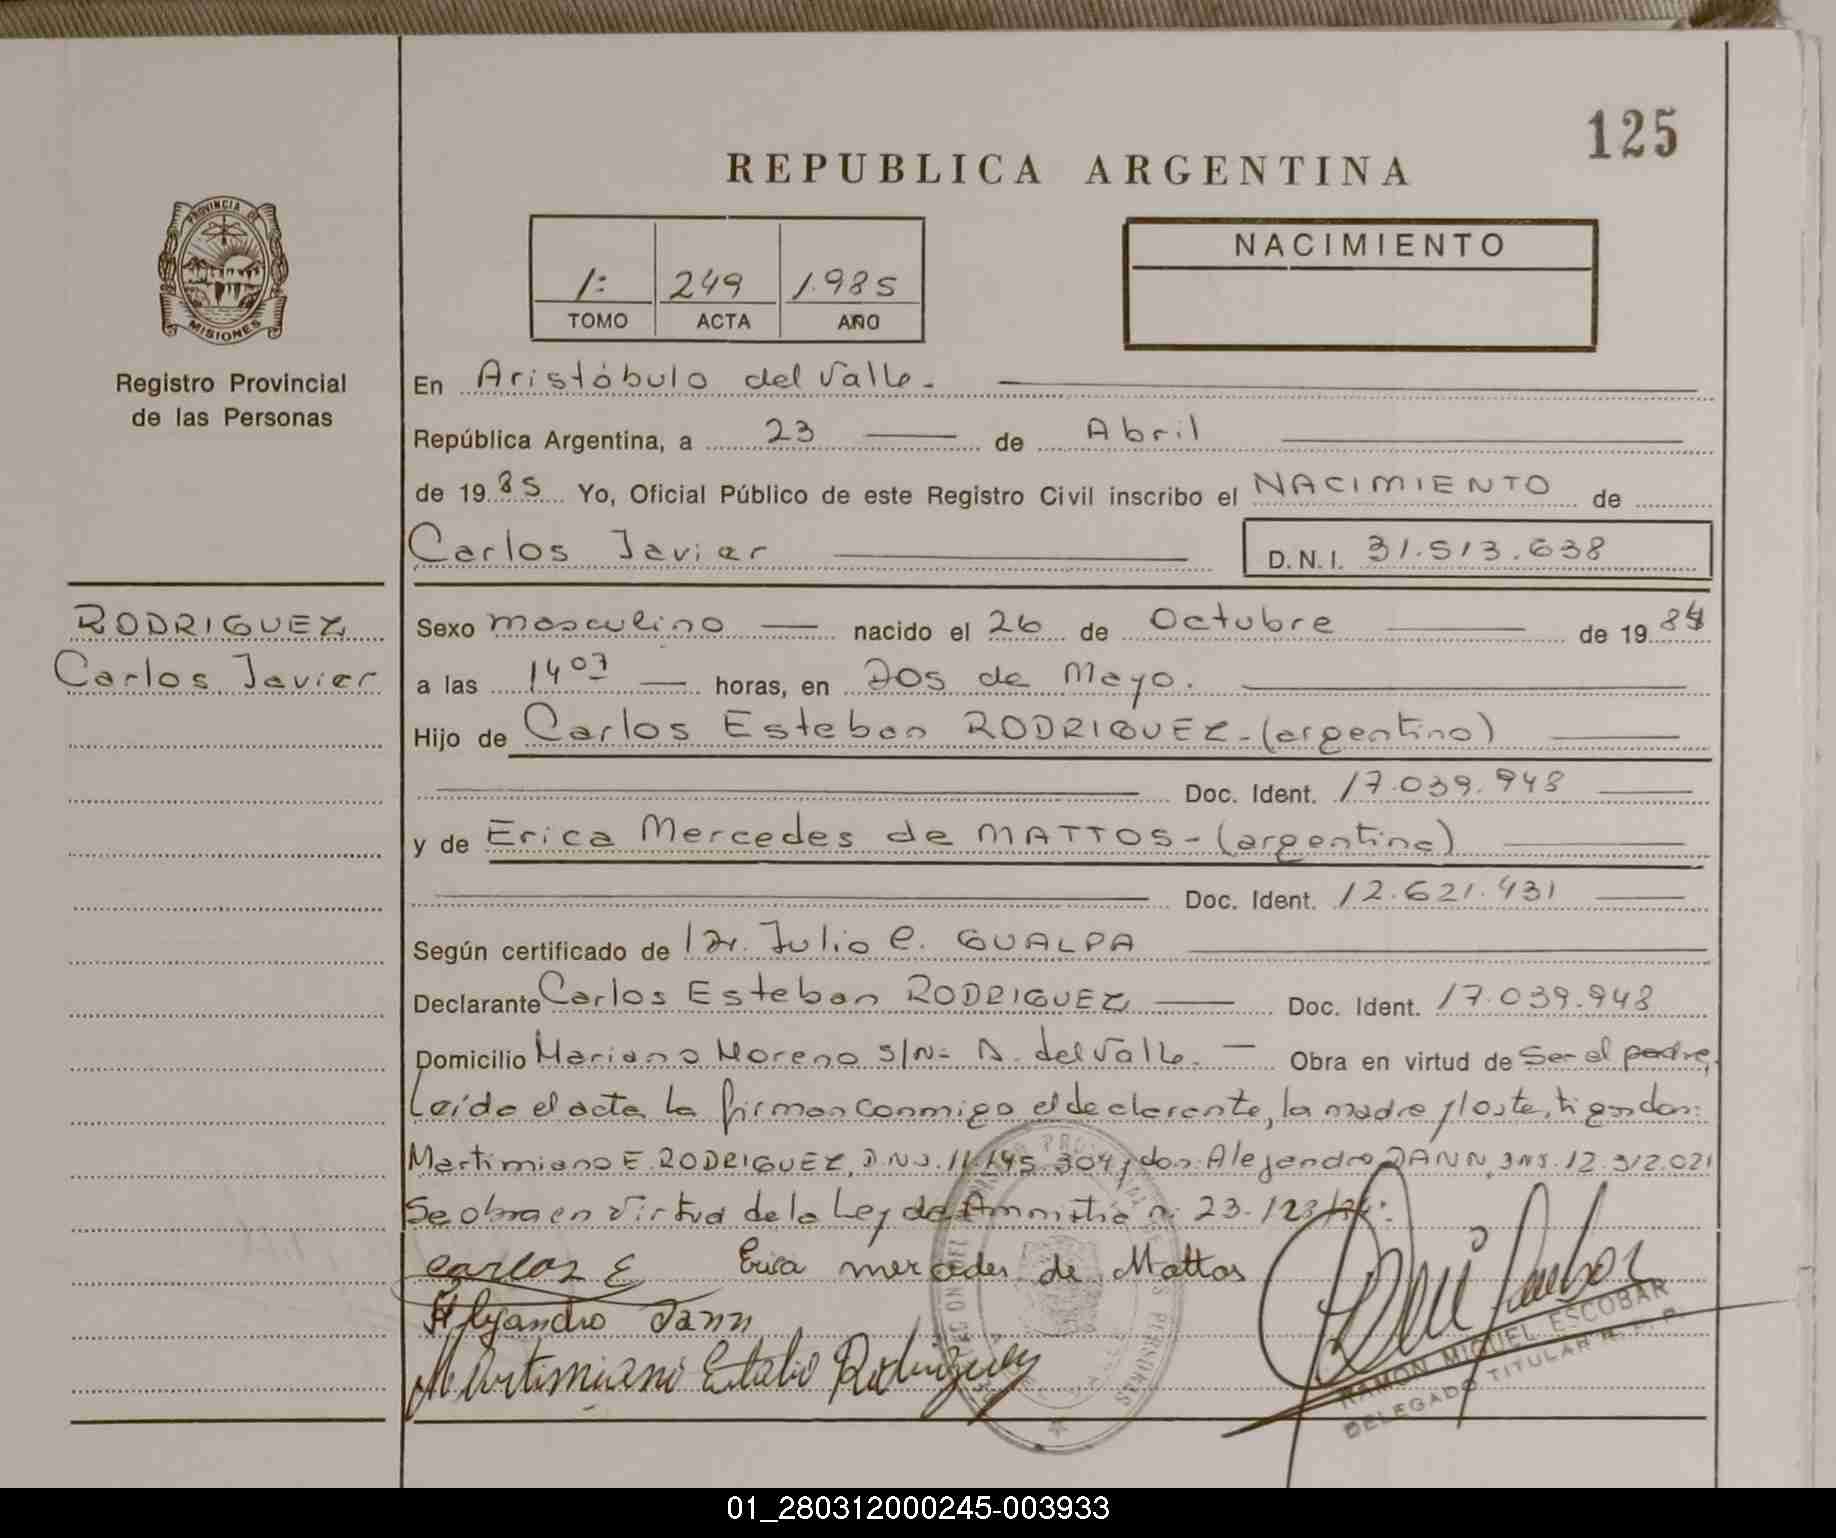 125
REPUBLICA ARGENTINA
PROVINCIA DE
MISIONES
Registro Provincial
de las Personas
1: 249 1.985
TOMO ACTA AÑO
NACIMIENTO
En Aristóbulo del Valle.
República Argentina, a 23 de Abril
de 19 85 Yo, Oficial Público de este Registro Civil inscribo el NACIMIENTO de
Carlos Javier D.N.I. 31.513.638
RODRIGUEZ
Carlos Javier
Sexo masculino nacido el 26 de Octubre de 19 84
a las 14 07 horas, en Dos de Mayo.
Hijo de Carlos Esteban RODRIGUEZ - (argentino)
Doc. Ident. 17.039.948
y de Erica Mercedes de MATTOS - (argentina)
Doc. Ident. 12.621.431
Según certificado de Dr. Julio C. GUALPA
Declarante Carlos Esteban RODRIGUEZ Doc. Ident. 17.039.948
Domicilio Mariano Moreno S/N- A. del Valle. Obra en virtud de Ser el padre,
Leída el acta la firman conmigo el declarante, la madre y los testigos don:
Martimiano E. RODRIGUEZ, D.N.I. 11.145.304 y don Alejandro DANN, DNI. 12.312.021
Se obra en virtud de la Ley de Amnistía n: 23.123/84:
Carlos E Erica mercedes de Mattos
Alejandro Dann
Martimiano Rodriguez
RAMON MIGUEL ESCOBAR
DELEGADO TITULAR R. P. P.
01_280312000245-003933